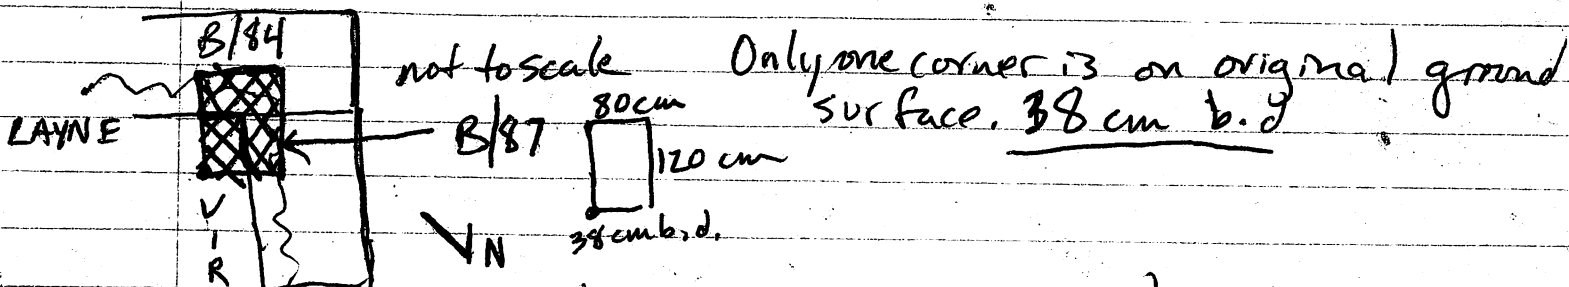 B/84
not to scale
Only one corner is on original ground
surface. 38 cm b.d
LAYNE
B/87
80cm
120 cm
38cmb.d.
VIR
N